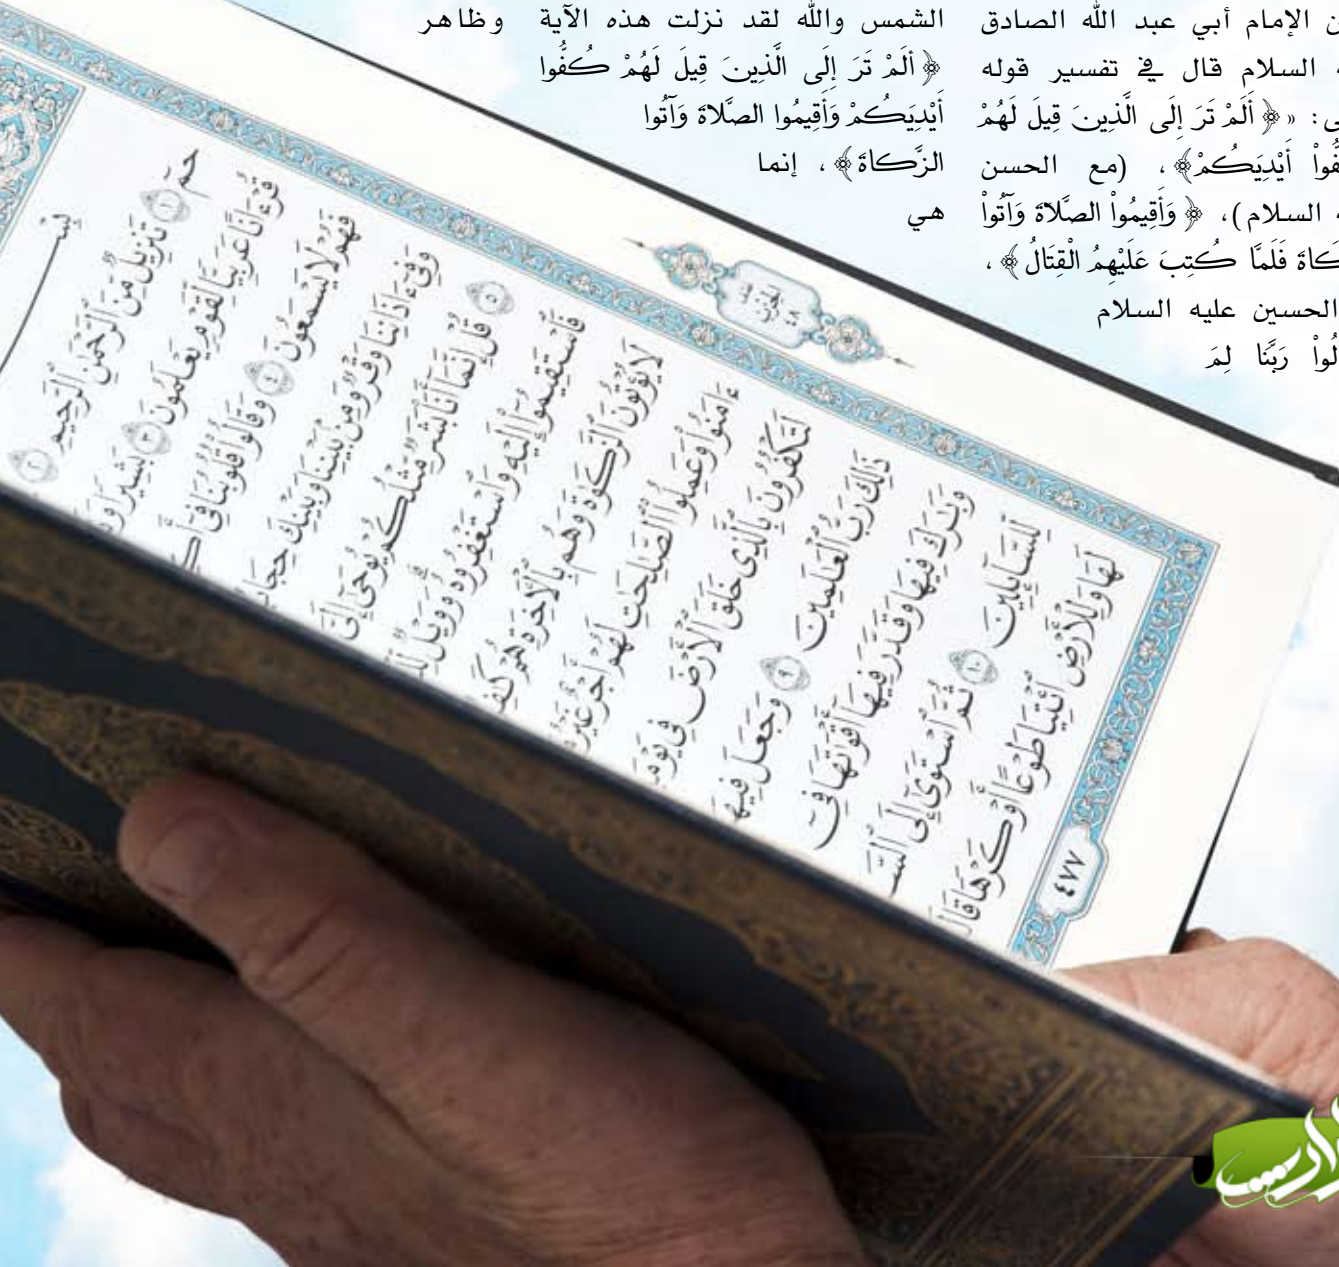 ن الإمام أبي عبد الله الصادق
السلام قال في تفسير قوله
ى: «﴿أَلَمْ تَرَ إِلَى الَّذِينَ قِيلَ لَهُمْ
فُّواْ أَيْدِيَكُمْ﴾، (مع الحسن
السلام)، ﴿وَأَقِيمُواْ الصَّلاَةَ وَآتُواْ
كَاةَ فَلَمَّا كُتِبَ عَلَيْهِمُ الْقِتَالُ﴾،
الحسين عليه السلام
الُواْ رَبَّنَا لِمَ
الشمس والله لقد نزلت هذه الآية
﴿أَلَمْ تَرَ إِلَى الَّذِينَ قِيلَ لَهُمْ كُفُّوا
أَيْدِيَكُمْ وَأَقِيمُوا الصَّلَاةَ وَآتُوا
الزَّكَاةَ﴾، إنما
هي
وظاهر
الحزب ٤٨
حمٓ ١ تَنزِيلٌ مِّنَ ٱلرَّحْمَٰنِ ٱلرَّحِيمِ ٢
قُرْءَانًا عَرَبِيًّا لِّقَوْمٍ يَعْلَمُونَ ٣ بَشِيرًا
فَهُمْ لَا يَسْمَعُونَ ٤ وَقَالُوا۟ قُلُوبُنَا فِىٓ
وَفِىٓ ءَاذَانِنَا وَقْرٌ وَمِنۢ بَيْنِنَا وَبَيْنِكَ حِجَابٌ
٥ قُلْ إِنَّمَآ أَنَا۠ بَشَرٌ مِّثْلُكُمْ يُوحَىٰٓ إِلَىَّ
فَٱسْتَقِيمُوٓا۟ إِلَيْهِ وَٱسْتَغْفِرُوهُ وَوَيْلٌ
لَا يُؤْتُونَ ٱلزَّكَوٰةَ وَهُم بِٱلْءَاخِرَةِ هُمْ
ءَامَنُوا۟ وَعَمِلُوا۟ ٱلصَّٰلِحَٰتِ لَهُمْ أَجْرٌ غَيْرُ
لَتَكْفُرُونَ بِٱلَّذِى خَلَقَ ٱلْأَرْضَ فِى
ذَٰلِكَ رَبُّ ٱلْعَٰلَمِينَ ٩ وَجَعَلَ فِيهَا
وَبَٰرَكَ فِيهَا وَقَدَّرَ فِيهَآ أَقْوَٰتَهَا فِىٓ
لِّلسَّآئِلِينَ ١٠ ثُمَّ ٱسْتَوَىٰٓ إِلَى
لَهَا وَلِلْأَرْضِ ٱئْتِيَا طَوْعًا أَوْ كَرْهًا
٤٧٧